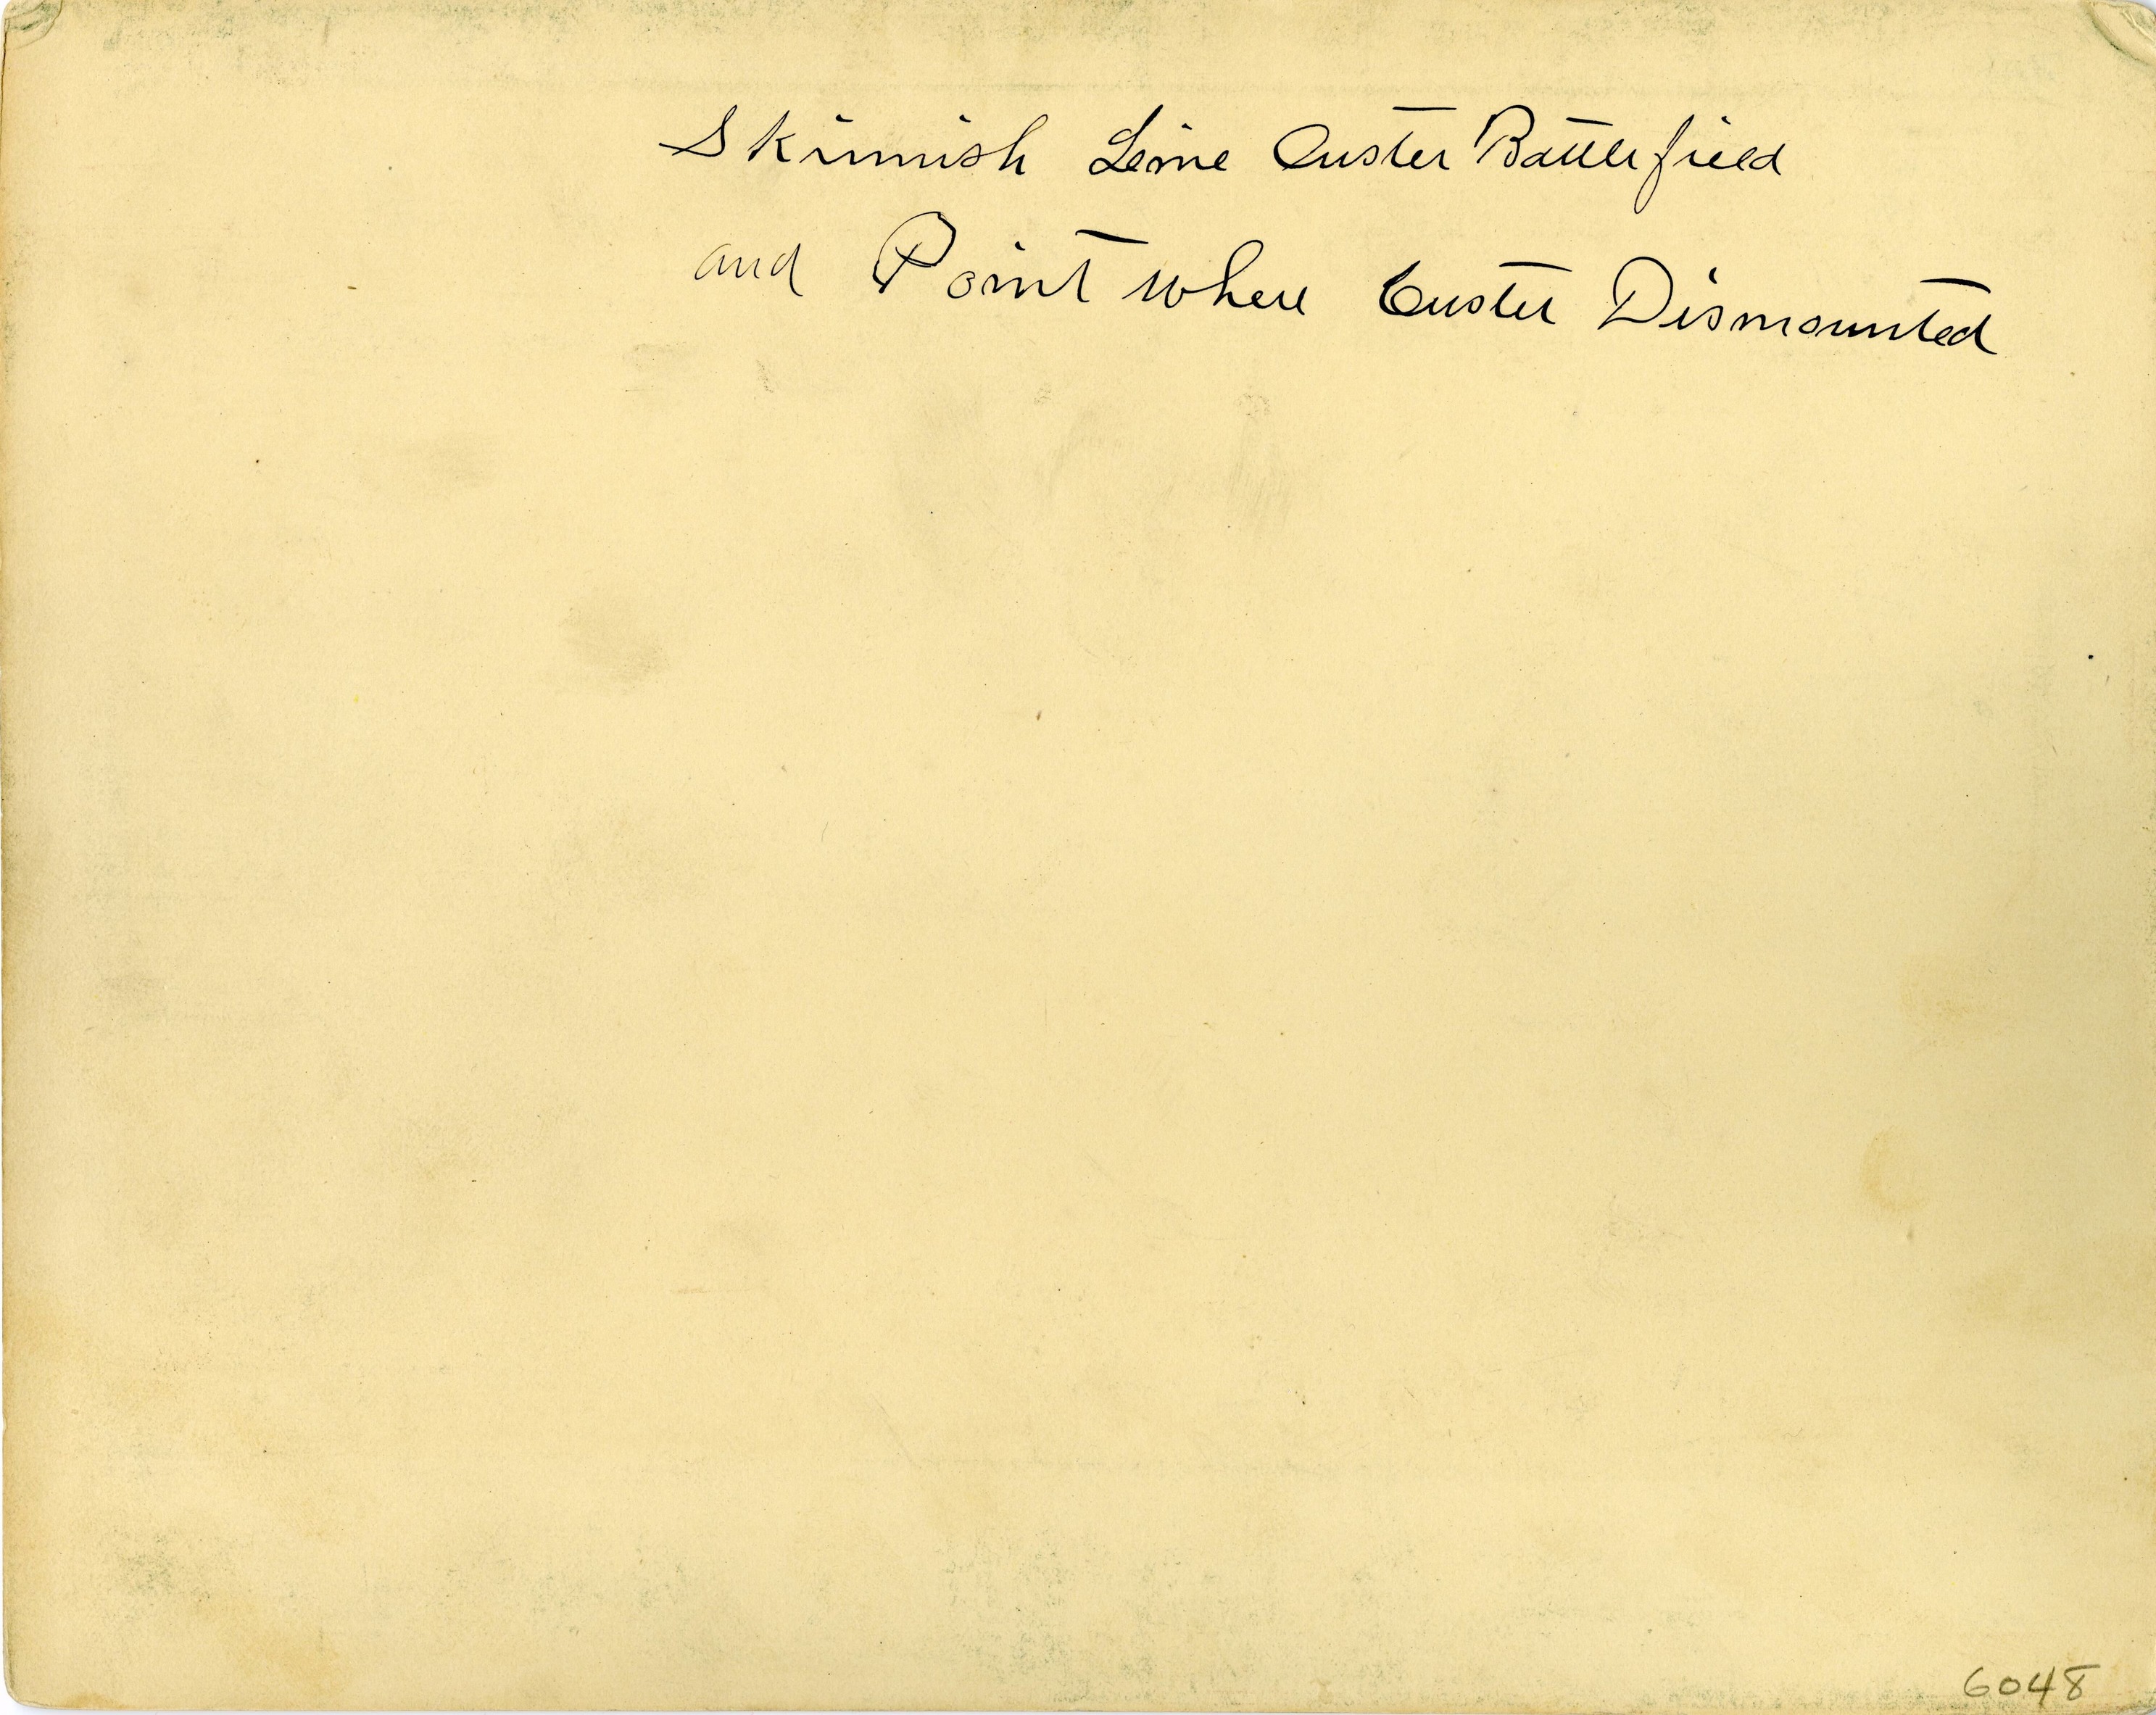 Skirmish Line Custer Battlefield
and Point where Custer Dismounted
6048